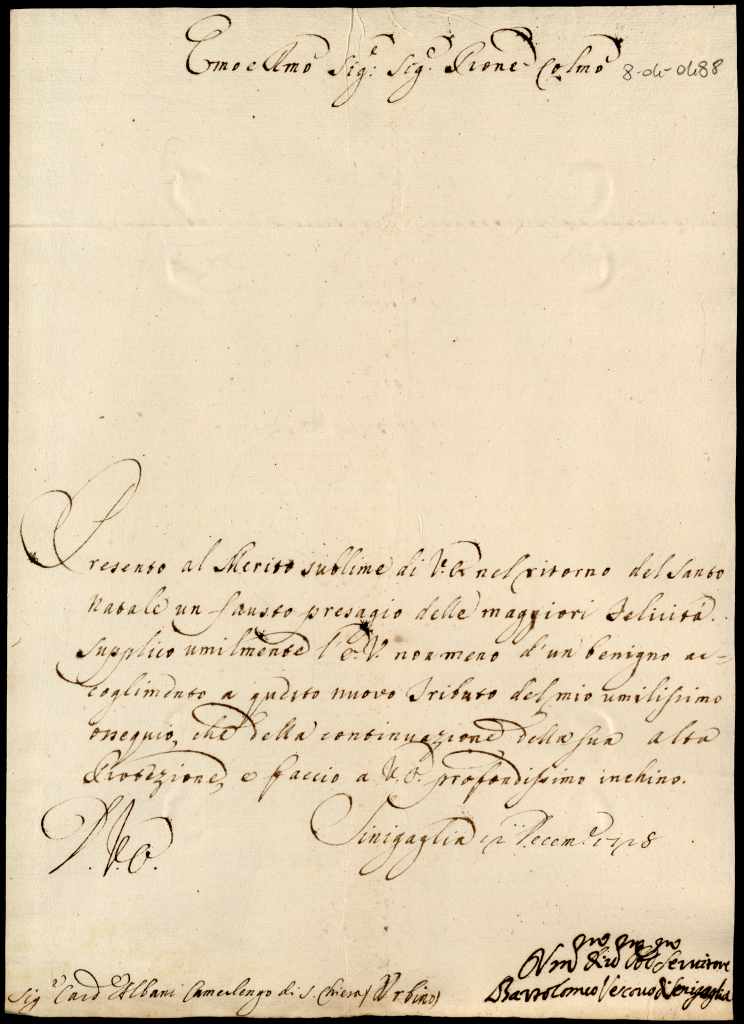 Emo e Rmo Sig.r Sig.r Prone Colmo
8-04-0488
Presento al Merito sublime di V.E. nel ritorno del Santo
Natale un fausto presagio delle maggiori felicità.
Supplico umilmente l'E.V. non meno d'un benigno ac-
coglimento a questo nuovo tributo del mio umilissimo
ossequio, che della continuazione della sua alta
Protezione, e faccio a V.E. profondissimo inchino.
D. V. E.
Sinigaglia Decem.e 1718
Sig.r Card. Albani Camerlengo di S. Chiesa / Urbino /
Servitore
Bartolomeo Vescovo di Senigaglia